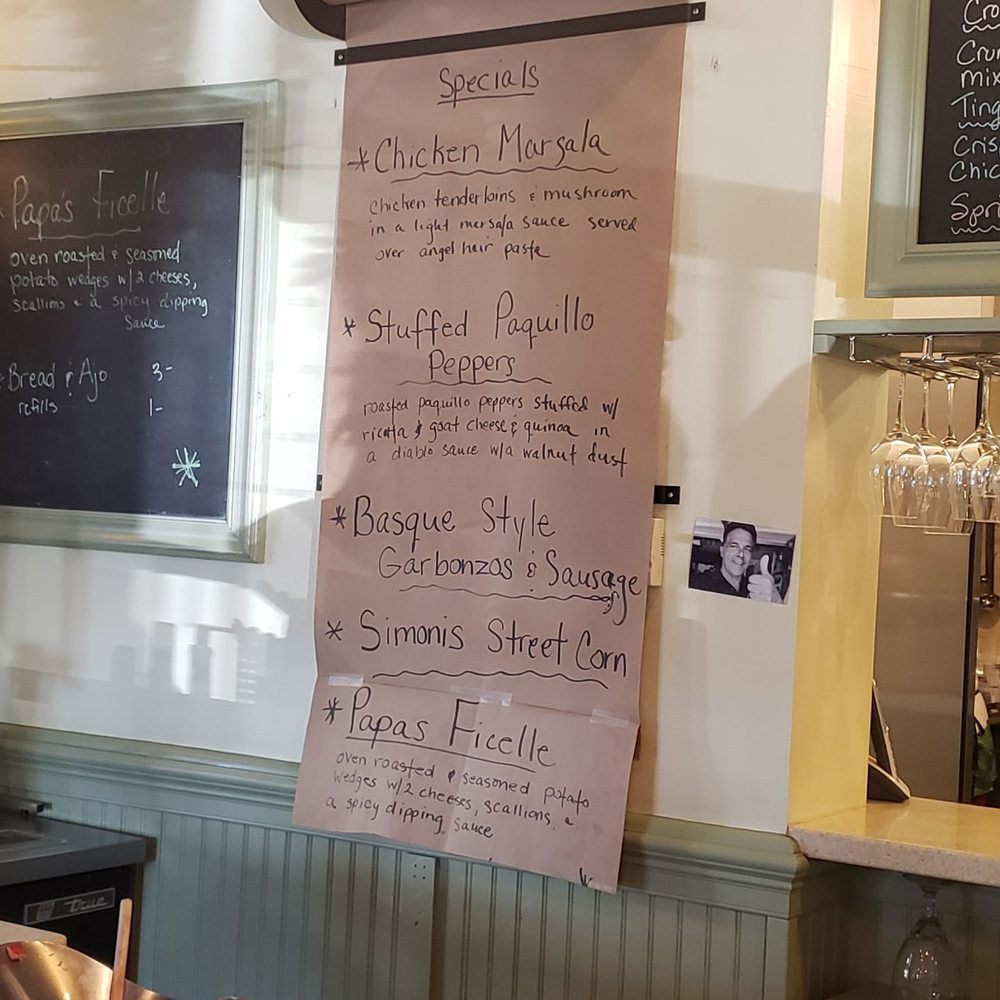 Papa's Ficelle
oven roasted & seasoned
potato wedges w/2 cheeses,
scallions & a spicy dipping
Sauce
Bread & Ajo 3-
refills 1-
Specials
* Chicken Marsala
chicken tenderloins & mushroom
in a light marsala sauce served
over angel hair pasta
* Stuffed Paquillo
Peppers
roasted paquillo peppers stuffed w/
ricotta & goat cheese & quinoa in
a diablo sauce w/a walnut dust
* Basque Style
Garbonzos & Sausage
* Simonis Street Corn
* Papas Ficelle
oven roasted & seasoned potato
wedges w/2 cheeses, scallions, &
a spicy dipping sauce
Ting
Chic
true